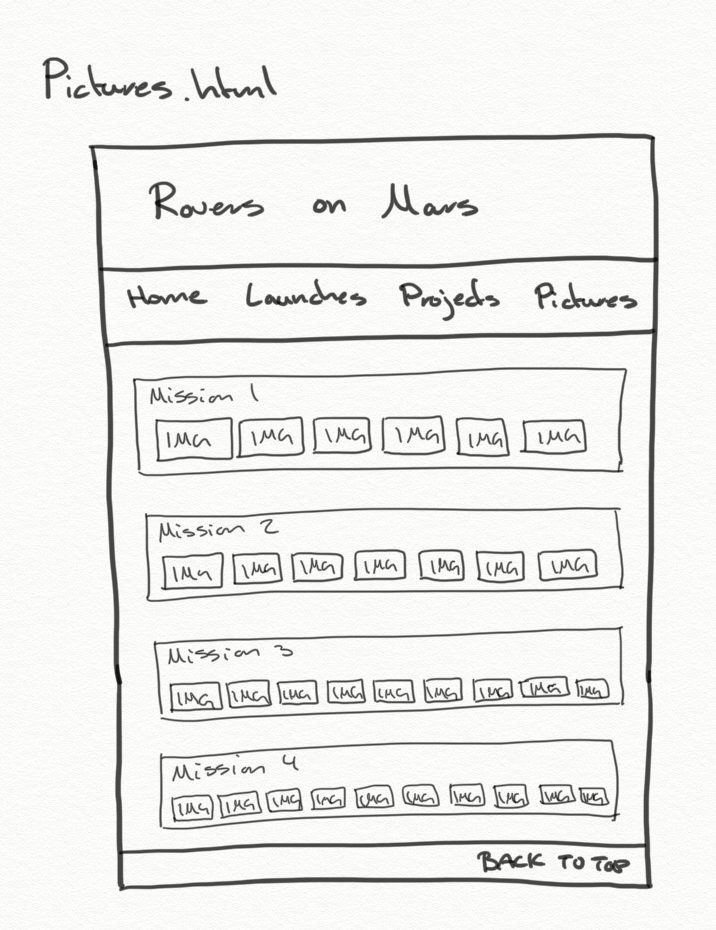 Pictures.html
Rovers on Mars
Home Launches Projects Pictures
Mission 1
IMG IMG IMG IMG IMG IMG
Mission 2
IMG IMG IMG IMG IMG IMG IMG
Mission 3
IMG IMG IMG IMG IMG IMG IMG IMG IMG
Mission 4
IMG IMG IMG IMG IMG IMG IMG IMG IMG IMG
BACK TO TOP